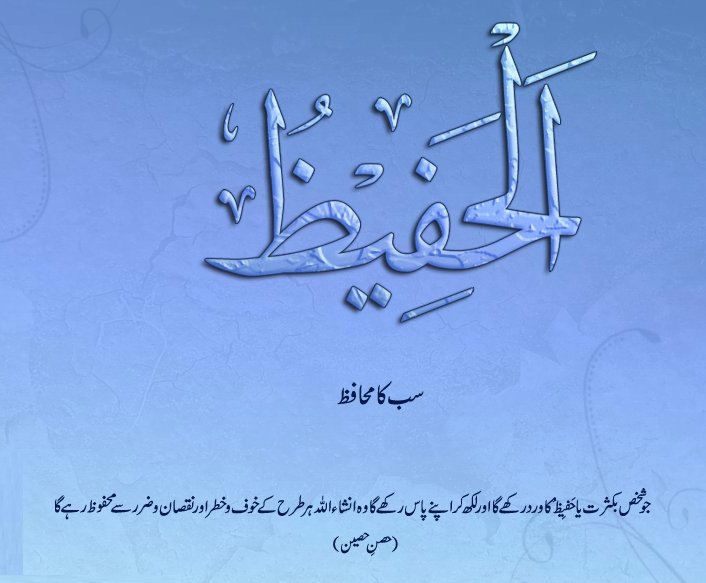 الْحَفِيظُ
سب کا محافظ
جو شخص بکثرت یا حَفِیظُ کا ورد رکھے گا اور لکھ کر اپنے پاس رکھے گا وہ انشاء اللہ ہر طرح کے خوف و خطر اور نقصان و ضرر سے محفوظ رہے گا
(حصنِ حصین)